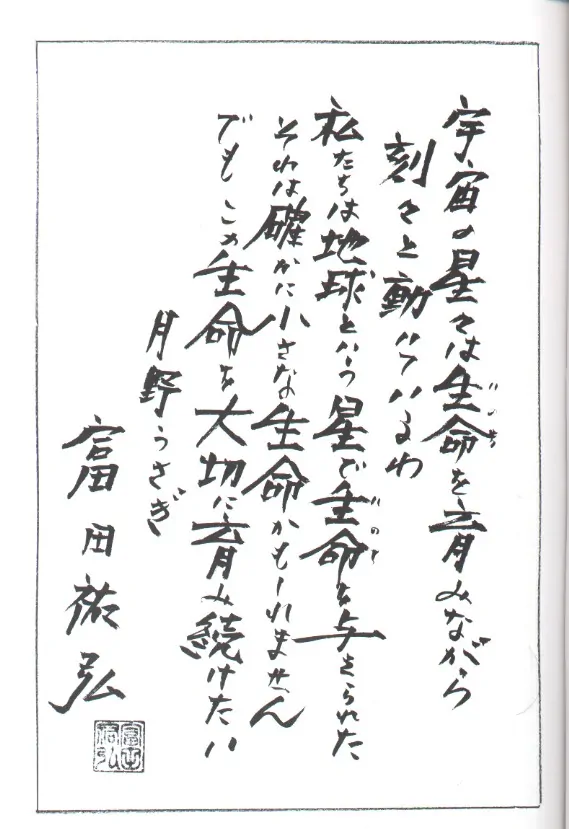 宇宙の星々は生命を育みながら
いのち
刻々と動いているわ
私たちは地球という星で生命を与えられた
いのち
それは確かに小さな生命かもしれません
でもこの生命を大切に育み続けたい
月野うさぎ
富田祐弘
富田祐弘